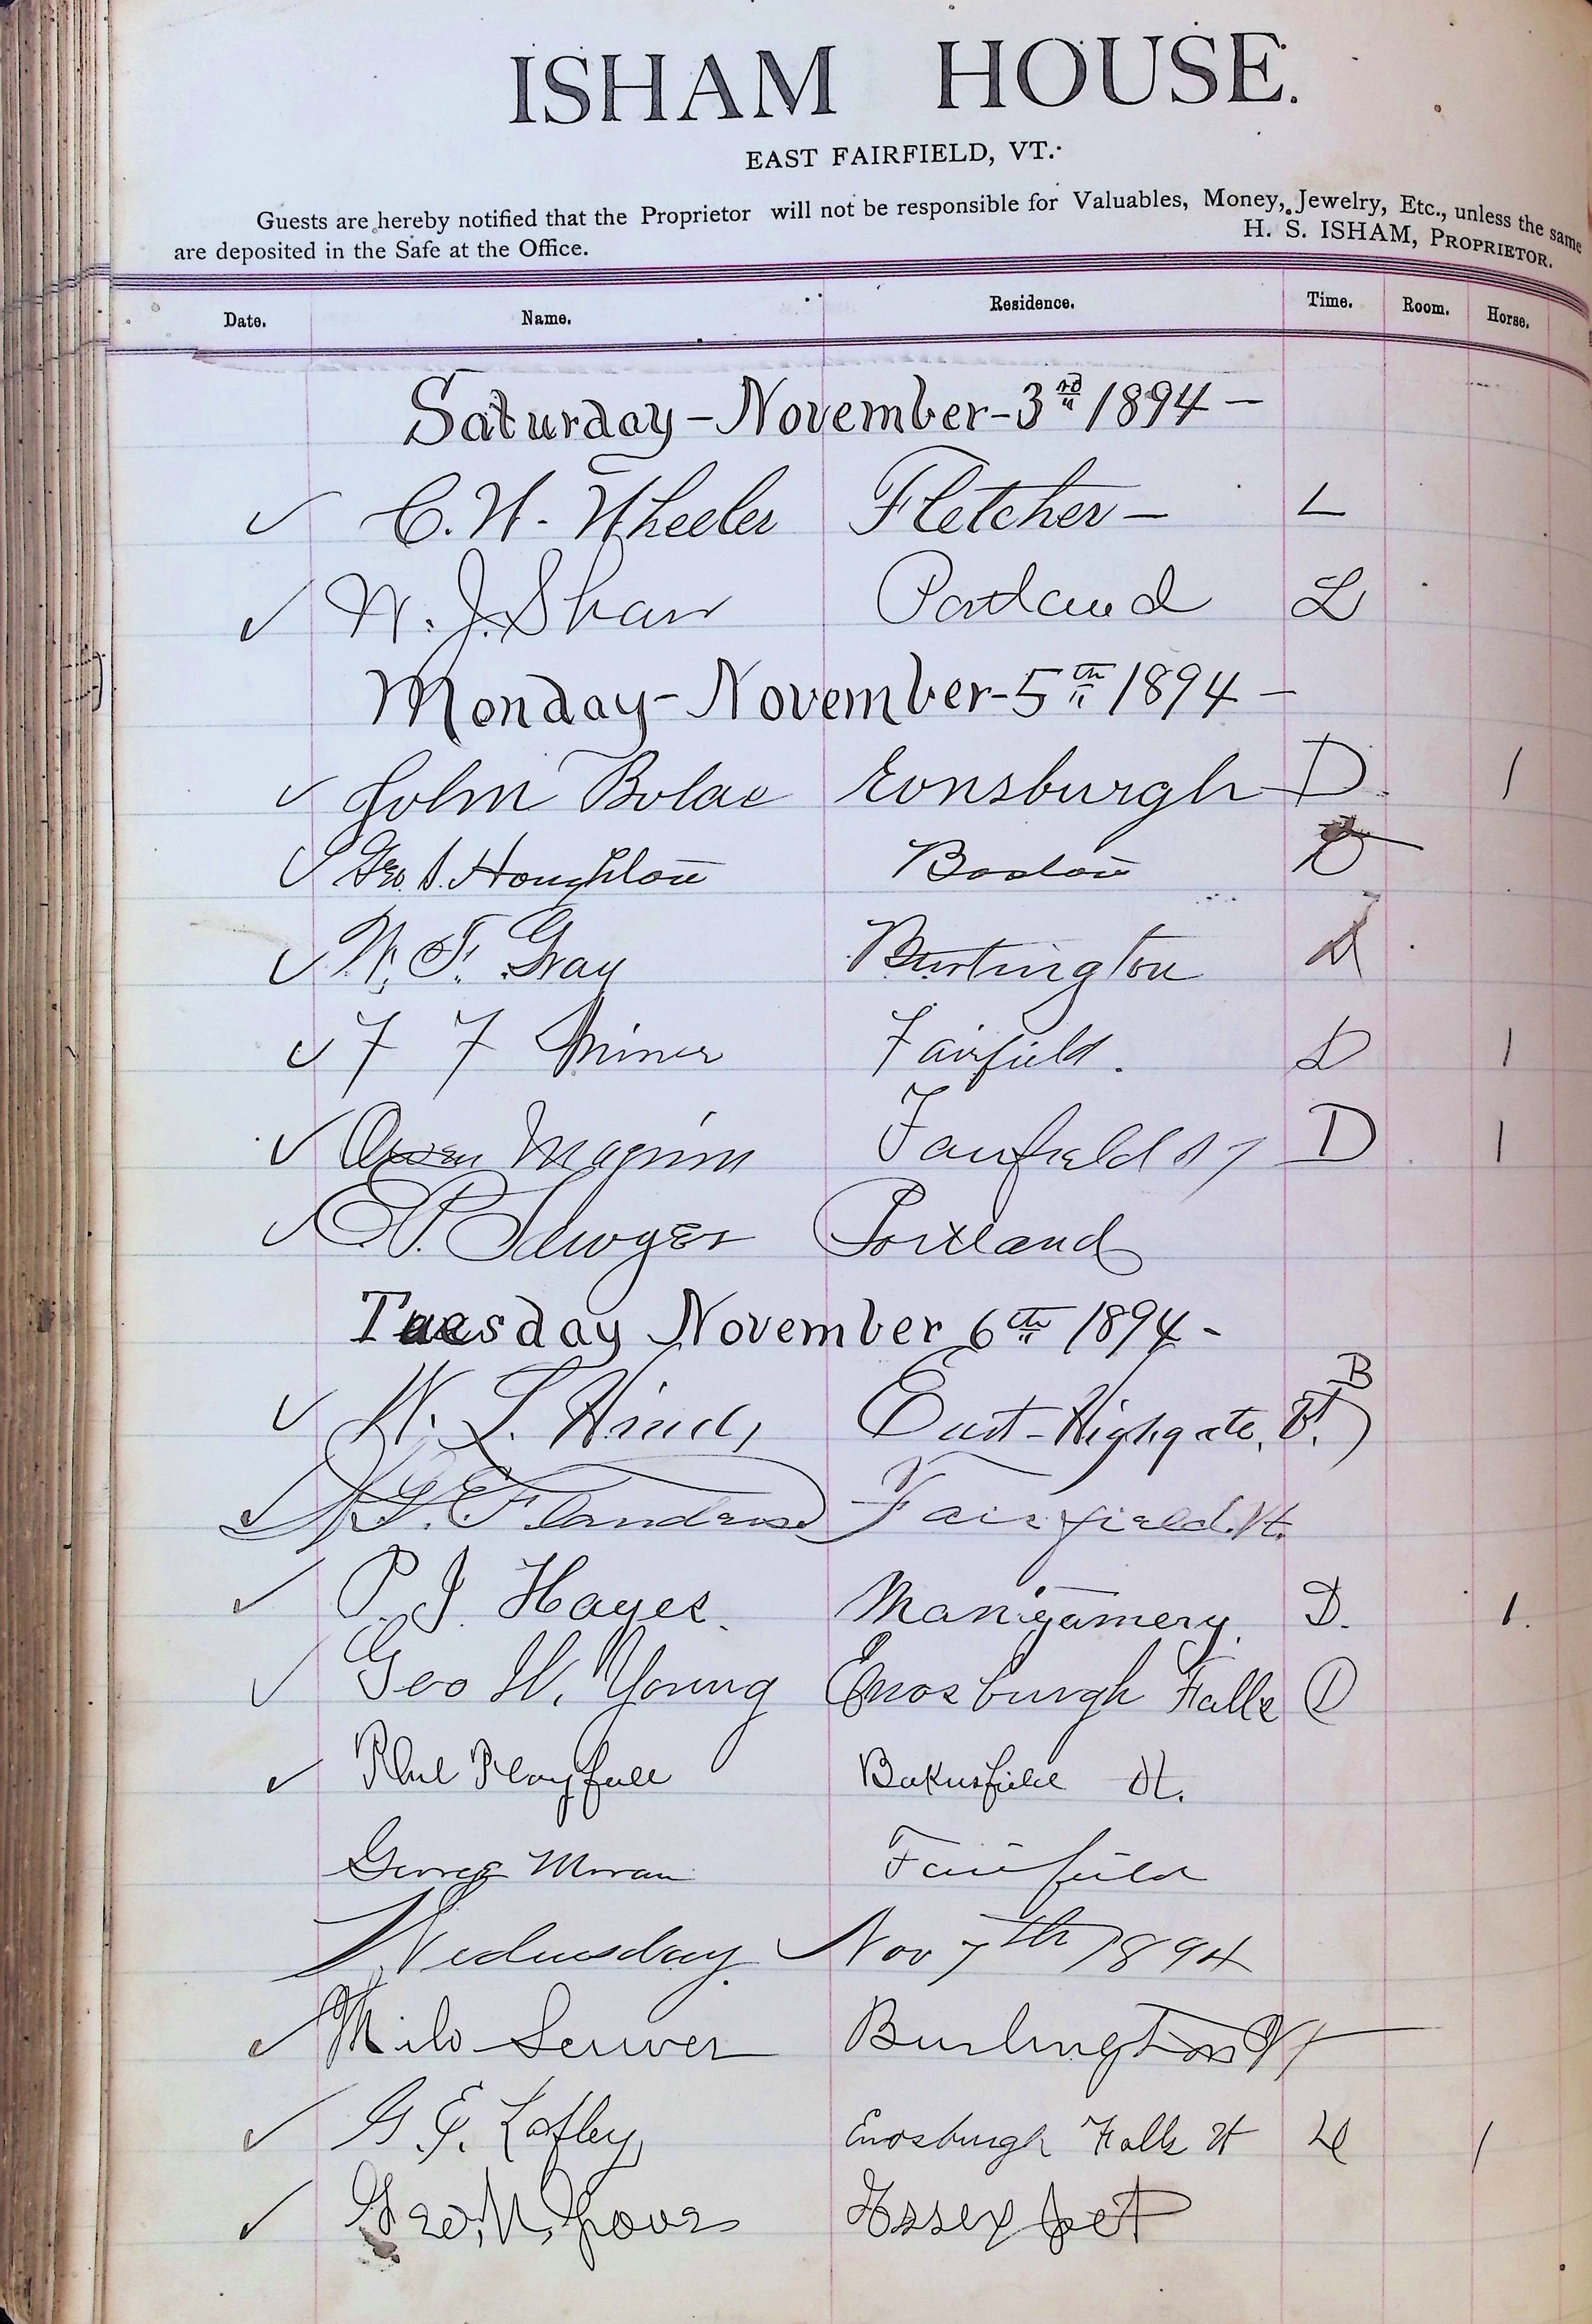 ISHAM HOUSE.
EAST FAIRFIELD, VT.
Guests are hereby notified that the Proprietor will not be responsible for Valuables, Money, Jewelry, Etc., unless the same
are deposited in the Safe at the Office. H. S. ISHAM, PROPRIETOR.
Date. Name. Residence. Time. Room. Horse.
Saturday - November - 3rd 1894 -
C. W. Wheeler Fletcher - L
W. J. Shaw Portland L
Monday - November - 5th 1894 -
John Bolac Eonsburgh D 1
Geo. S. Houghton Boston D
W. F. Gray Burlington D
F F Miner Fairfield. D 1
Owen Maginn Fairfield D 1
Portland
Tuesday November 6th 1894 -
W. L. Hinds East Highgate, Vt. B
Flanders Fairfield. Vt.
P. J. Hayes. D. 1.
Geo W. Young Enosburgh Falls D
Phil Bakersfield Vt.
George Moran Fairfield
Wednesday Nov 7th 1894
Milo Burlington Vt
G. E. Lafley Enosburgh Falls Vt 1
Geo. N. Essex Jct